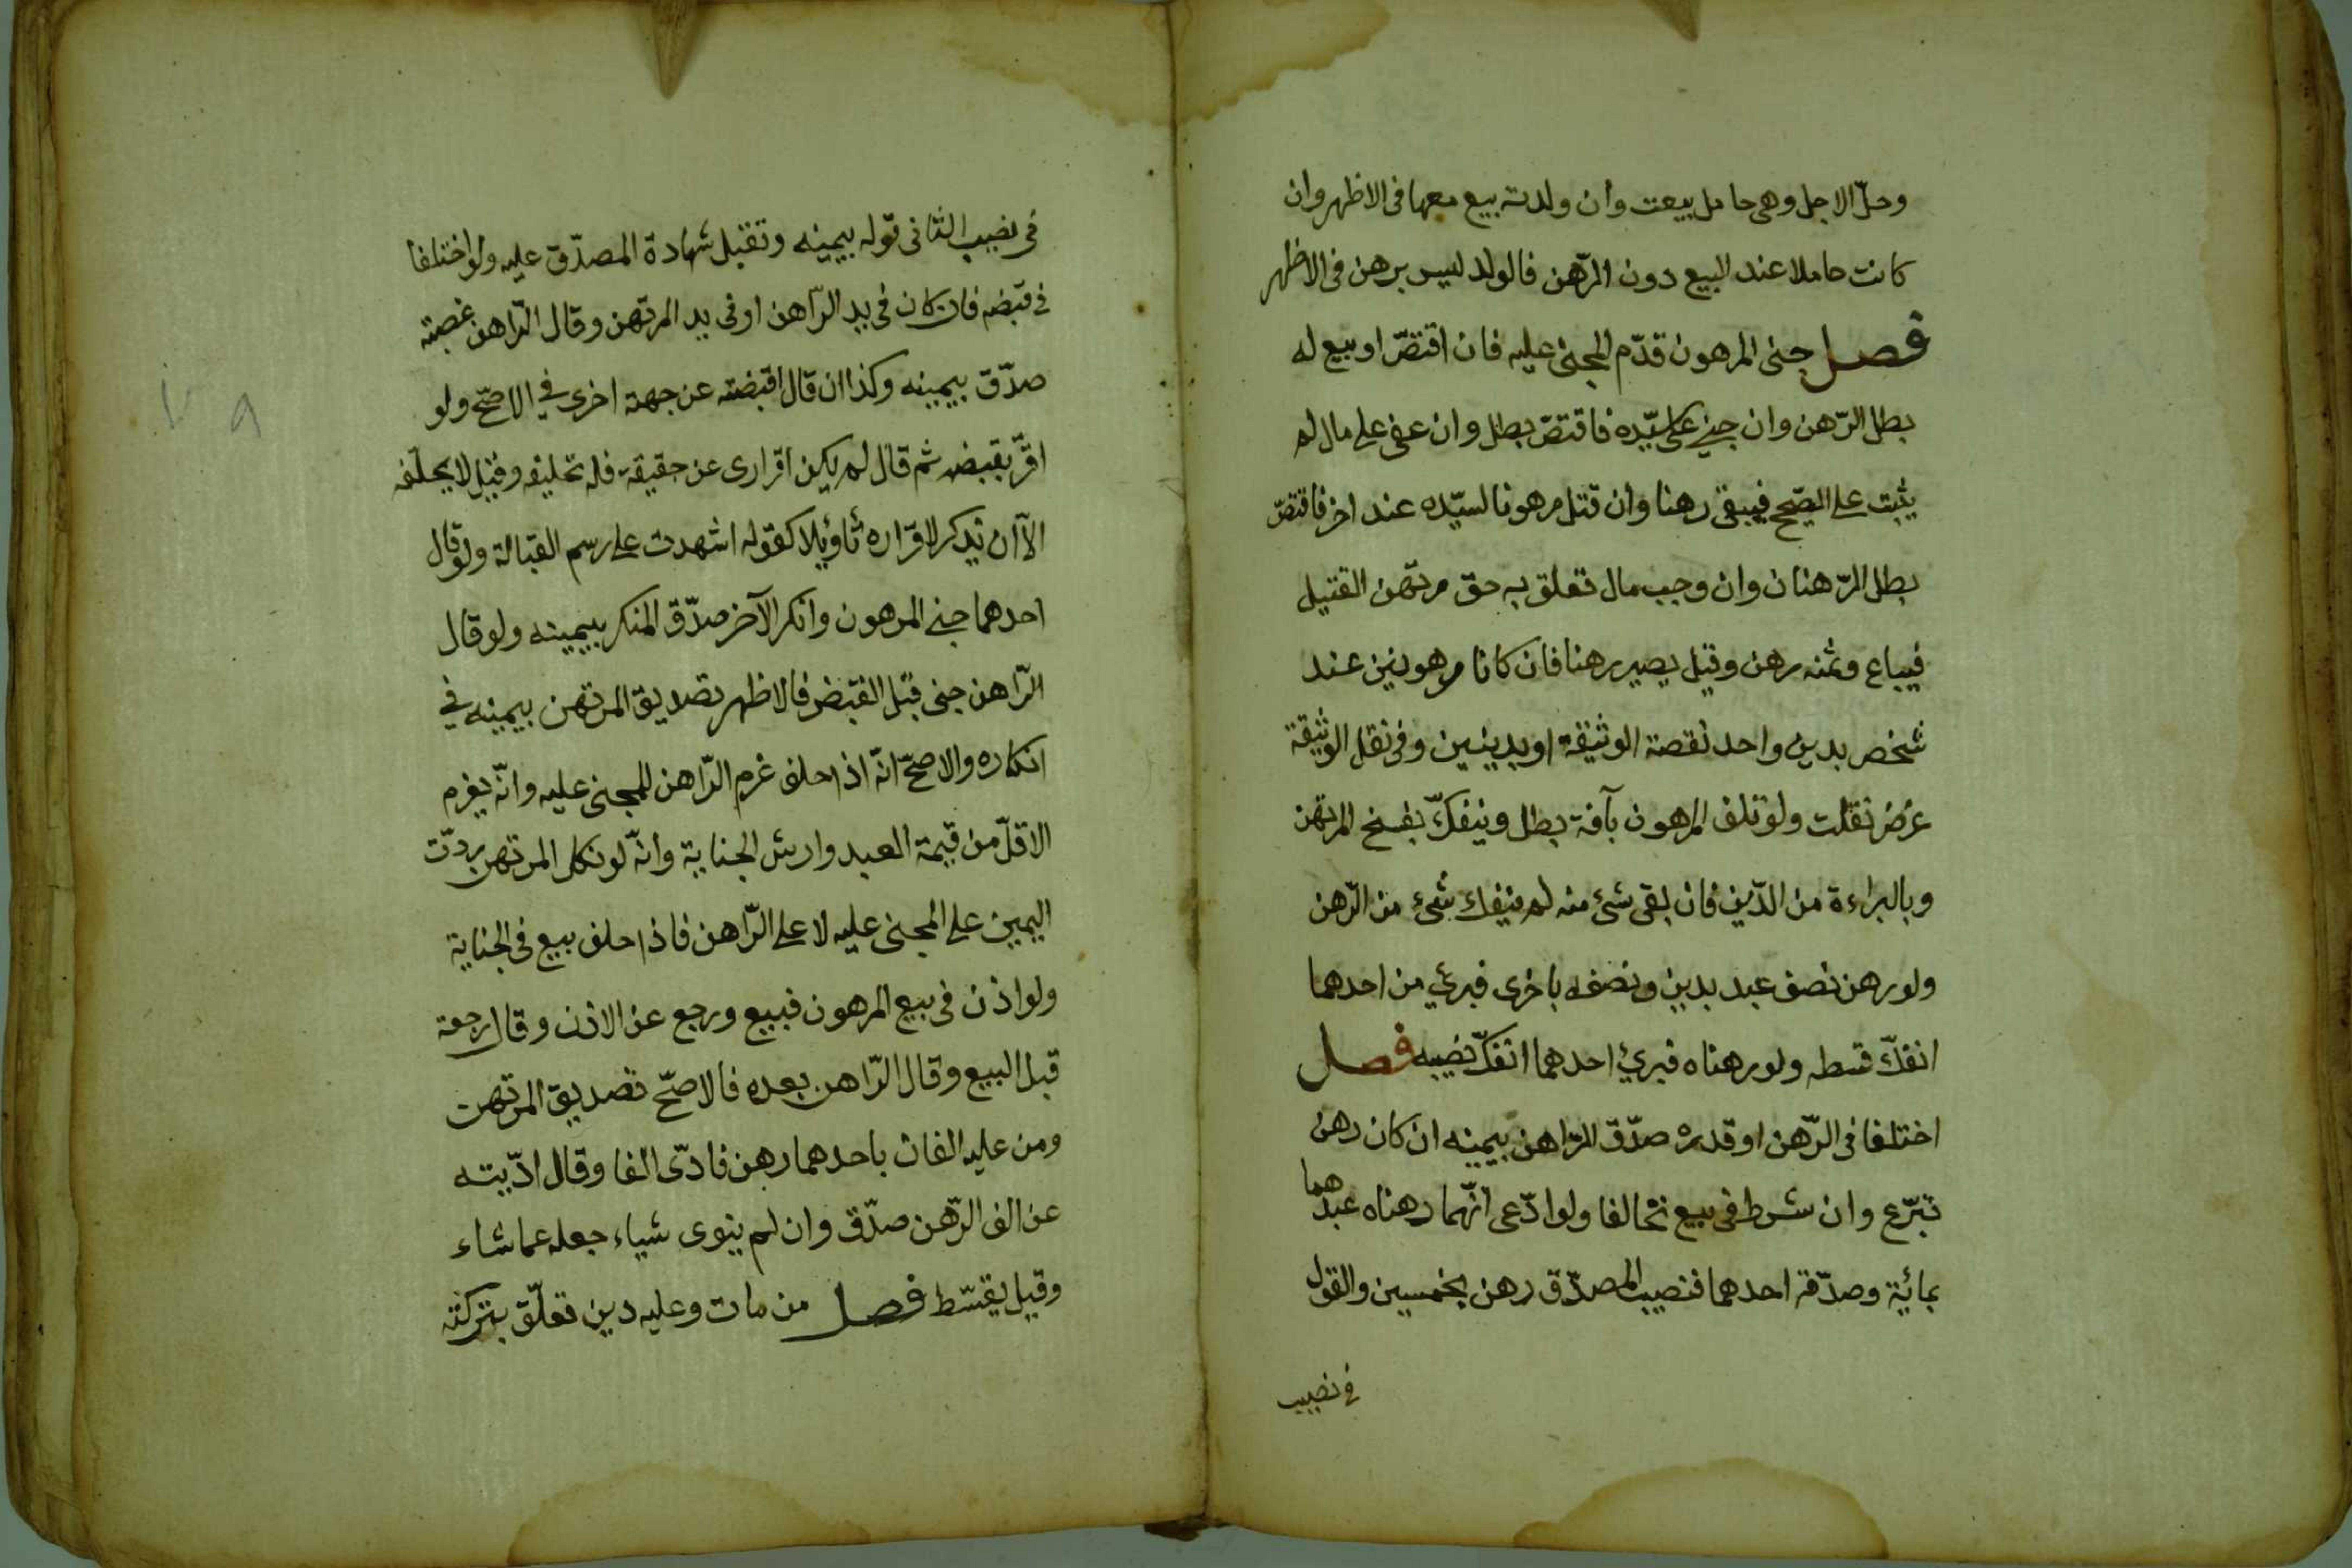 وحلّ الاجل وهى حامل بيعت وان ولدته بيع معها فى الاظهر وان
كانت حاملا عند البيع دون الرّهن فالولد ليس برهن فى الاظهر
فصل جنى المرهون قدّم المجنى عليه فان اقتصّ او بيع له
بطل الرّهن وان جنى على سيّده فاقتصّ بطل وان عفى على مال لم
يثبت على الصّحيح فيبقى رهنا وان قتل مرهونا لسيّده عند اخر فاقتصّ
بطل الرّهنان وان وجب مال تعلق به حق مرتهن القتيل
فيباع وثمنه رهن وقيل يصير رهنا فان كانا مرهونين عند
شخص بدين واحد نقصة الوثيقة او بدينين وفى نقل الوثيقة
غرض نقلت ولو تلف المرهون بآفة بطل وينفكّ بفسخ المرتهن
وبالبراءة من الدّين فان بقى شئ منه لم ينفك شئ من الرّهن
ولو رهن نصف عبد بدين ونصفه باخرى فبرئ من احدهما
انفكّ قسطه ولو رهناه فبرئ احدهما انفكّ نصيبه فصل
اختلفا فى الرّهن او قدره صدّق الرّاهن بيمينه ان كان رهن
تبرّع وان شرط فى بيع تحالفا ولو ادّعى انّهما رهناه عبدهما
بمائة وصدّقه احدهما فنصيب المصدّق رهن بخمسين والقول
فى نصيب
فى نصيب الثانى قوله بيمينه وتقبل شهادة المصدّق عليه ولو اختلفا
فى قبضه فان كان فى يد الرّاهن او فى يد المرتهن وقال الرّاهن غصبته
صدّق بيمينه وكذا ان قال اقبضته عن جهة اخرى فى الاصحّ ولو
اقرّ بقبضه ثم قال لم يكن اقرارى عن حقيقة فله تحليفه وقيل لا يحلّفه
الآ ان يذكر لاقراره تأويلا كقوله اشهدت على رسم القبالة ولو قال
احدهما جنى المرهون وانكر الآخر صدّق المنكر بيمينه ولو قال
الرّاهن جنى قبل القبض فالاظهر تصديق المرتهن بيمينه فى
انكاره والاصحّ انّه اذا حلف غرم الرّاهن للمجنى عليه وانّه يغرم
الاقلّ من قيمة العبد وارش الجناية وانّه لو نكل المرتهن ردّت
اليمين على المجنى عليه لا على الرّاهن فاذا حلف بيع فى الجناية
ولو اذن فى بيع المرهون فبيع ورجع عن الاذن وقال رجعة
قبل البيع وقال الرّاهن بعده فالاصحّ تصديق المرتهن
ومن عليه الفان باحدهما رهن فادّى الفا وقال ادّيته
عن الف الرّهن صدّق وان لم ينوى شياء جعله عما شاء
وقيل يقسّط فصل من مات وعليه دين تعلّق بتركته